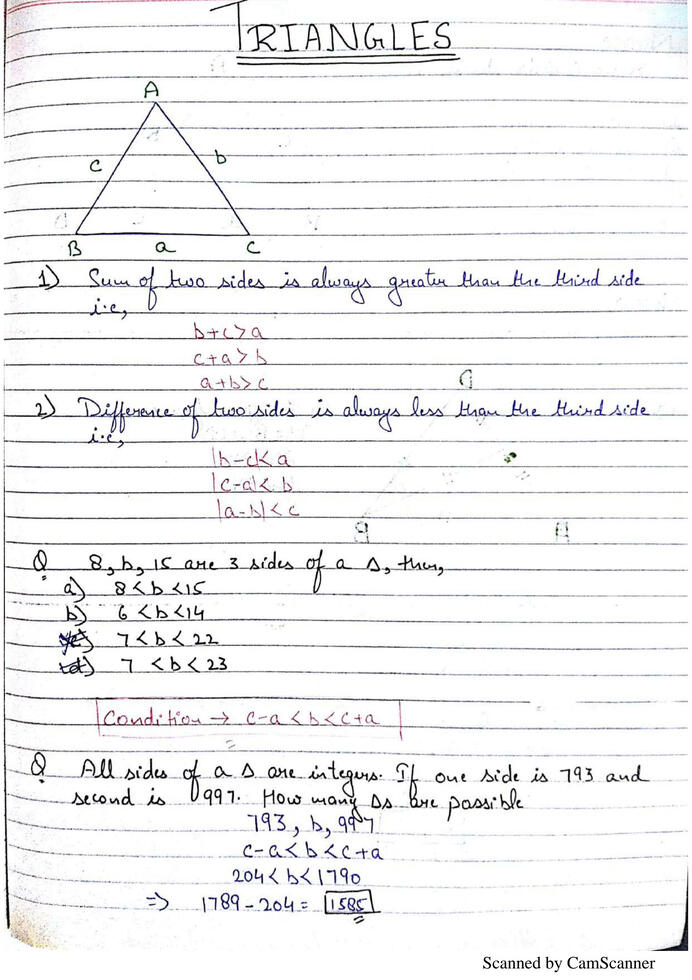 TRIANGLES
A
c
b
B
a
C
1) Sum of two sides is always greater than the third side
i.e,
b+c>a
c+a>b
a+b>c
2) Difference of two sides is always less than the third side
i.e,
|b-c|<a
|c-a|<b
|a-b|<c
Q 8, b, 15 are 3 sides of a Δ, then,
a) 8<b<15
b) 6<b<14
c) 7<b<22
d) 7<b<23
Condition → c-a<b<c+a
Q All sides of a Δ are integers. If one side is 793 and
second is 997. How many Δs are possible
793, b, 997
c-a<b<c+a
204<b<1790
⇒ 1789-204= 1585
Scanned by CamScanner